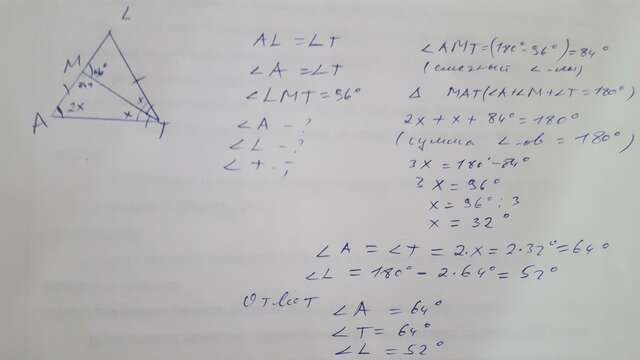 L
M
96°
84°
A
2x
x
x
T
AL = LT
∠A = ∠T
∠LMT = 96°
∠A - ?
∠L - ?
∠T - ?
∠AMT = (180° - 96°) = 84°
(смежный ∠-лы)
Δ MAT (∠A+∠M+∠T = 180°)
2x + x + 84° = 180°
(сумма ∠-ов = 180°)
3x = 180° - 84°
3x = 96°
x = 96° : 3
x = 32°
∠A = ∠T = 2·x = 2·32° = 64°
∠L = 180° - 2·64° = 52°
Ответ
∠A = 64°
∠T = 64°
∠L = 52°